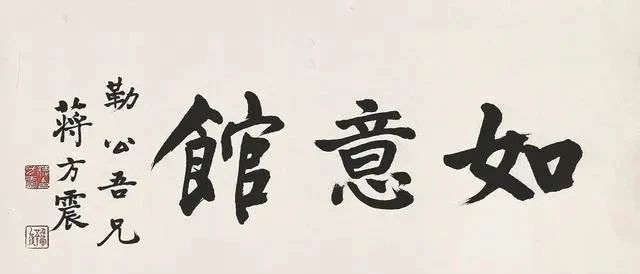 如意館
勒公吾兄
蔣方震